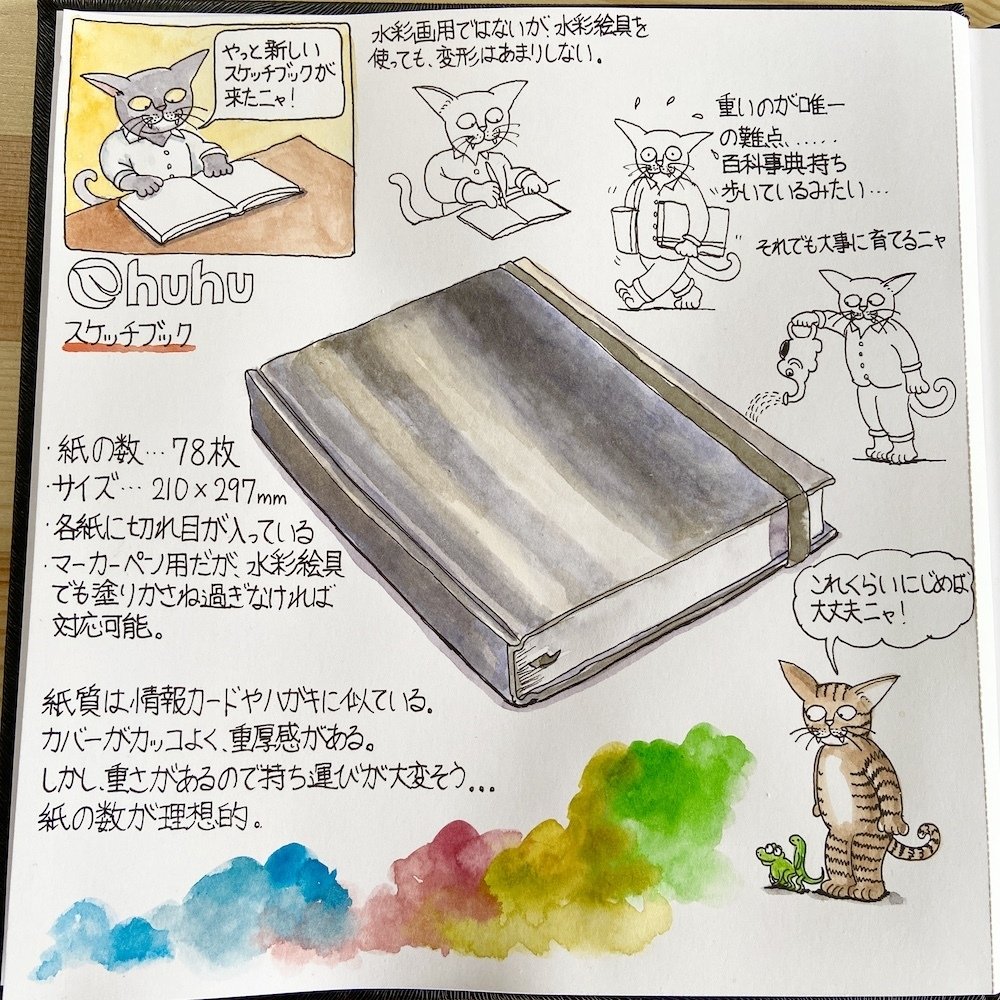 やっと新しい
スケッチブックが
来たニャ!
水彩画用ではないが、水彩絵具を
使っても、変形はあまりしない。
重いのが唯一
の難点......
百科事典持ち
歩いているみたい…
それでも大事に育てるニャ
Ohuhu
スケッチブック
・紙の数…78枚
・サイズ…210×297mm
・各紙に切れ目が入っている
・マーカーペン用だが、水彩絵具
でも塗りかさね過ぎなければ
対応可能。
これくらいにじめば
大丈夫ニャ!
紙質は、情報カードやハガキに似ている。
カバーがカッコよく、重厚感がある。
しかし、重さがあるので持ち運びが大変そう...
紙の数が理想的。